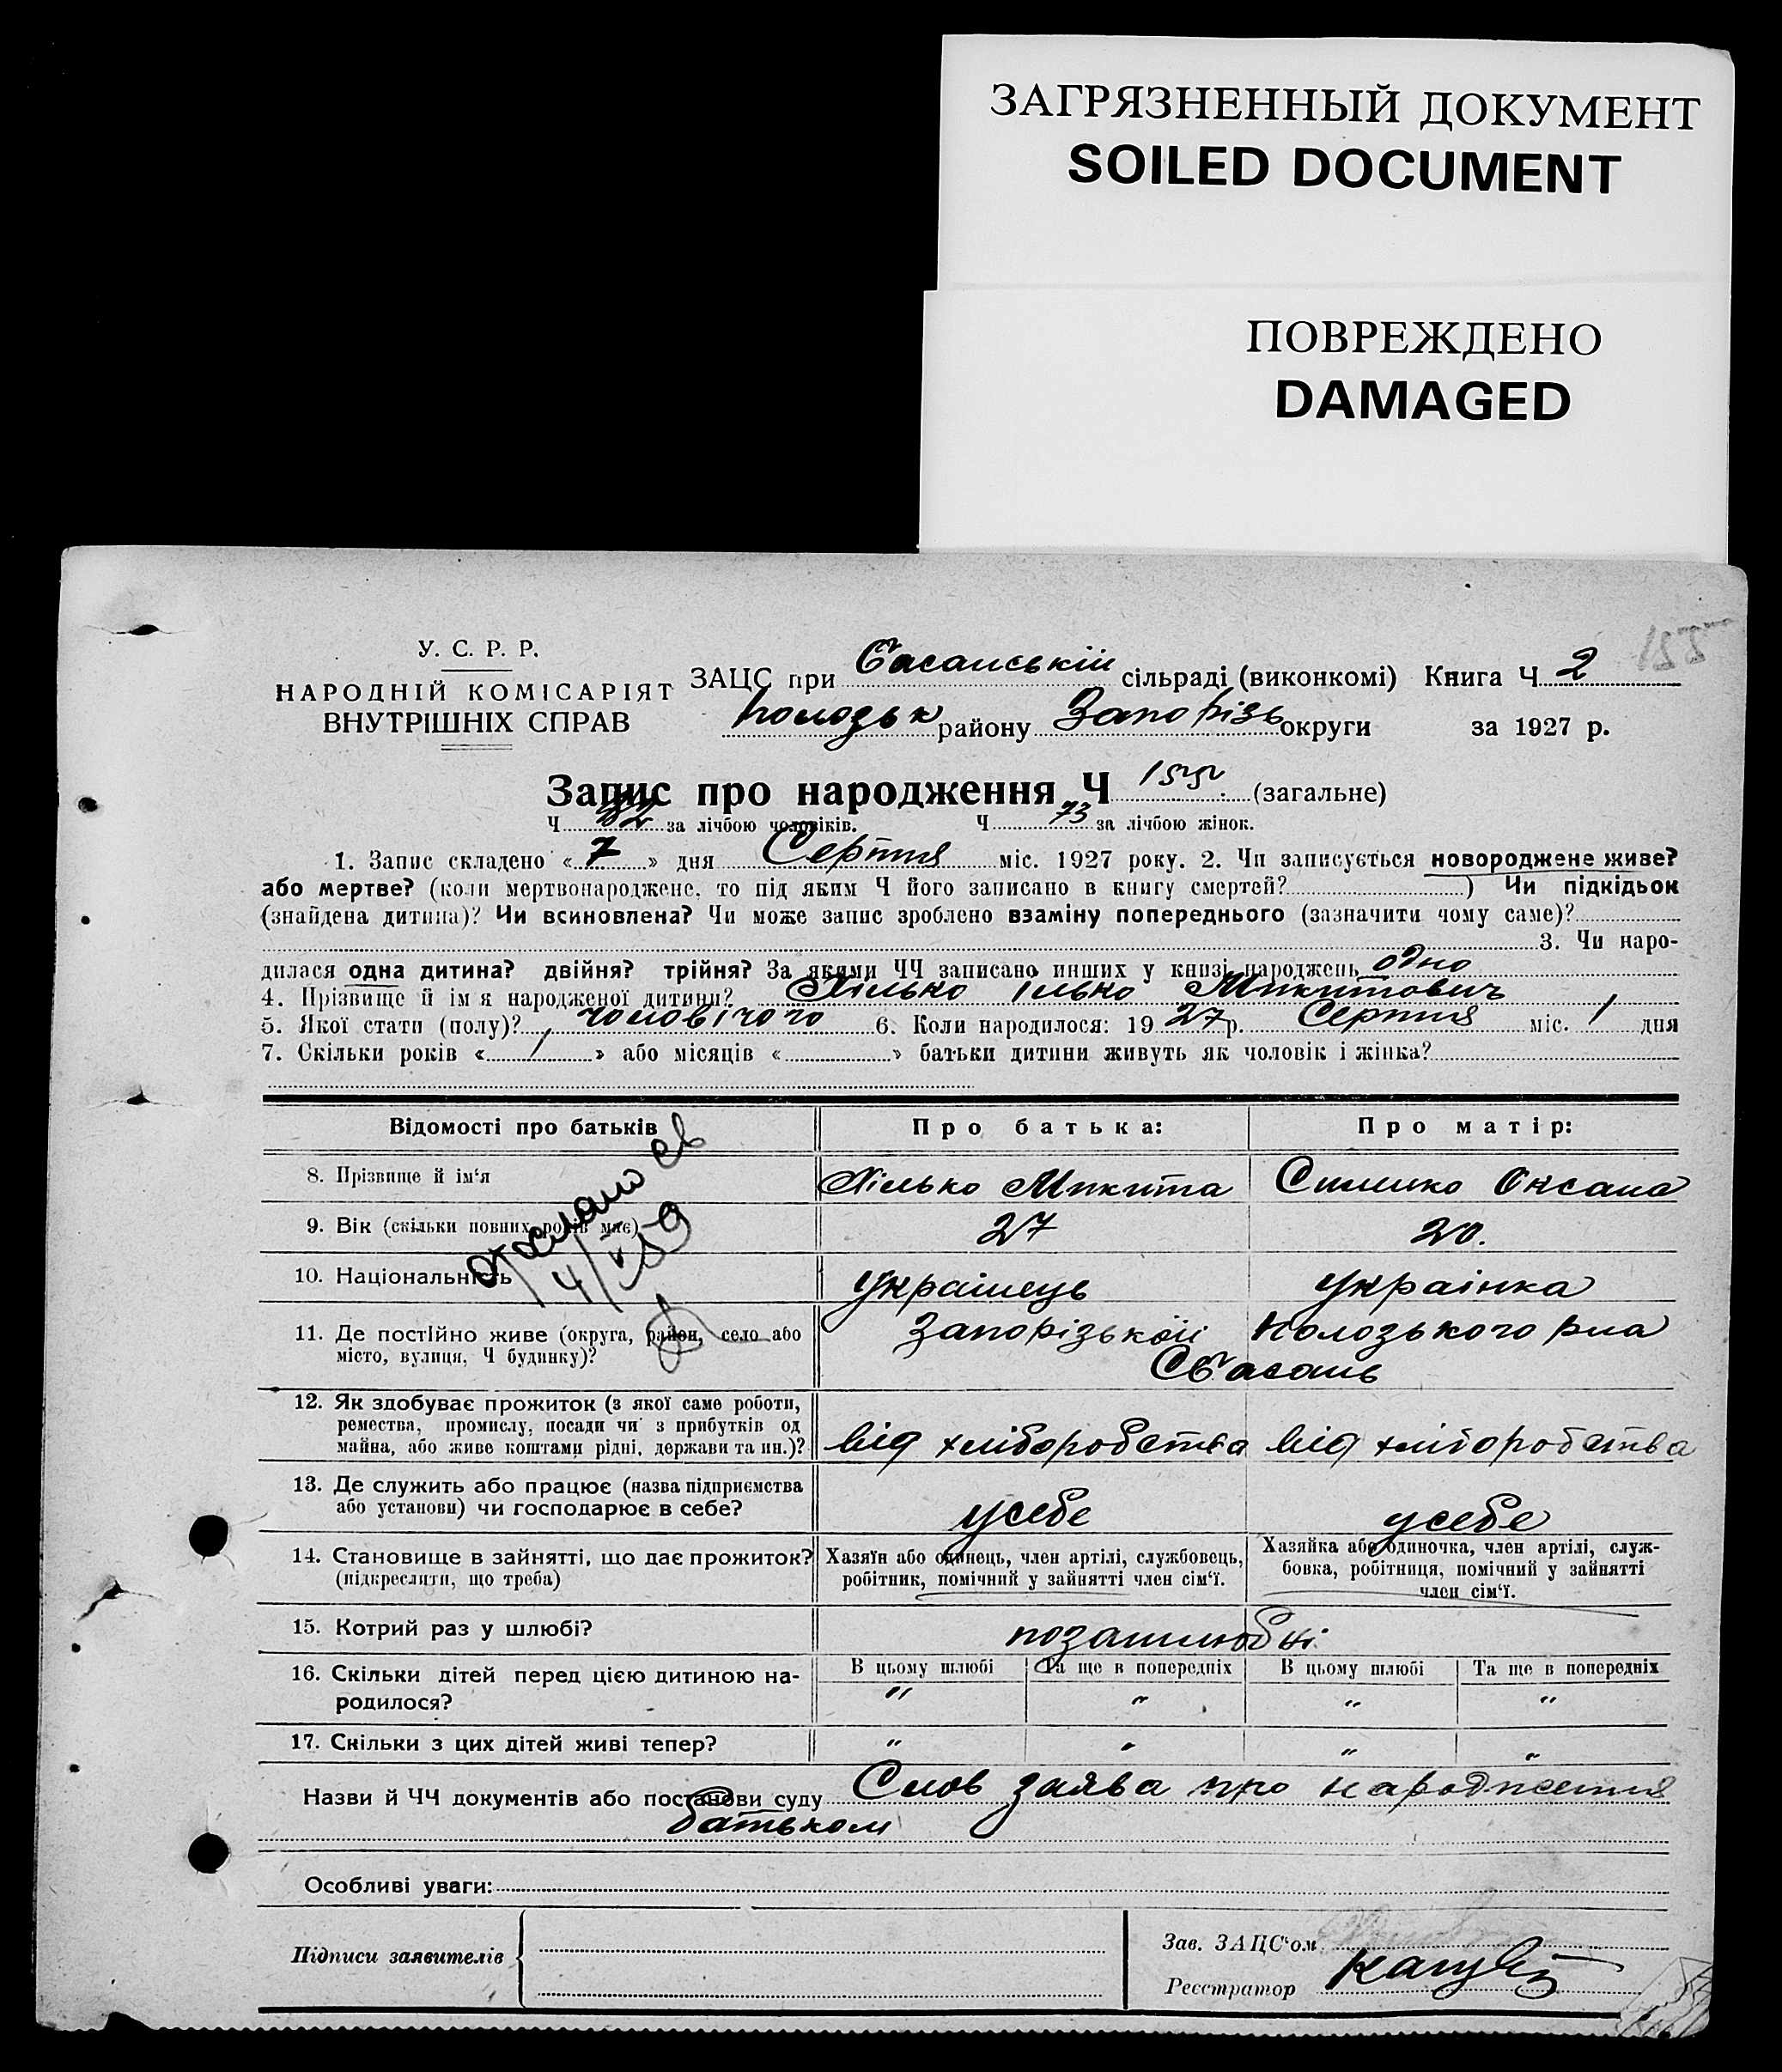 ЗАГРЯЗНЕННЫЙ ДОКУМЕНТ
SOILED DOCUMENT
ПОВРЕЖДЕНО
DAMAGED
155
У. С. Р. Р.
НАРОДНІЙ КОМІСАРІЯТ
ВНУТРІШНІХ СПРАВ
ЗАЦС при Басанській сільраді (виконкомі) Книга Ч 2
Пологьк району Запорізь округи за 1927 р.
Запис про народження Ч 155. (загальне)
Ч 82 за лічбою чоловіків. Ч 73 за лічбою жінок.
1. Запис складено « 7 » дня Серпня міс. 1927 року. 2. Чи записується новороджене живе?
або мертве? (коли мертвонароджене, то під яким Ч його записано в книгу смертей? ) Чи підкідьок
(знайдена дитина)? Чи всиновлена? Чи може запис зроблено взаміну попереднього (зазначити чому саме)?
3. Чи наро-
дилася одна дитина? двійня? трійня? За якими ЧЧ записано инших у книзі народжень одно
4. Прізвище й імя народженої дитини? Лілько Ілько Микитович
5. Якої стати (полу)? чоловічого 6. Коли народилося: 19 27 р. Серпня міс. 1 дня
7. Скільки років « 1 » або місяців « » батьки дитини живуть як чоловік і жінка?
Відомості про батьків Про батька: Про матір:
8. Прізвище й ім‘я Лілько Микита Оксана
9. Вік (скільки повних років має) 27 20.
10. Національність Українець Українка
11. Де постійно живе (округа, район, село або
місто, вулиця, Ч будинку)? Запорізької Пологзького р-на
С Басань
12. Як здобуває прожиток (з якої саме роботи,
ремества, промислу, посади чи з прибутків од
майна, або живе коштами рідні, держави та ин.)? від хліборобства від хліборобства
13. Де служить або працює (назва підприємства
або установи) чи господарює в себе? усебе усебе
14. Становище в зайнятті, що дає прожиток?
(підкреслити, що треба)
Хазяїн або одинець, член артілі, службовець,
робітник, помічний у зайнятті член сім‘ї.
Хазяйка або одиночка, член артілі, служ-
бовка, робітниця, помічний у зайнятті
член сім‘ї.
15. Котрий раз у шлюбі? позашлюбні
16. Скільки дітей перед цією дитиною на-
родилося?
В цьому шлюбі Та ще в попередніх В цьому шлюбі Та ще в попередніх
" " " "
17. Скільки з цих дітей живі тепер? " " " "
Назви й ЧЧ документів або постанови суду Слов заява про народження
батьком
Особливі уваги:
Підписи заявителів
Зав. ЗАЦС‘ом
Реєстратор